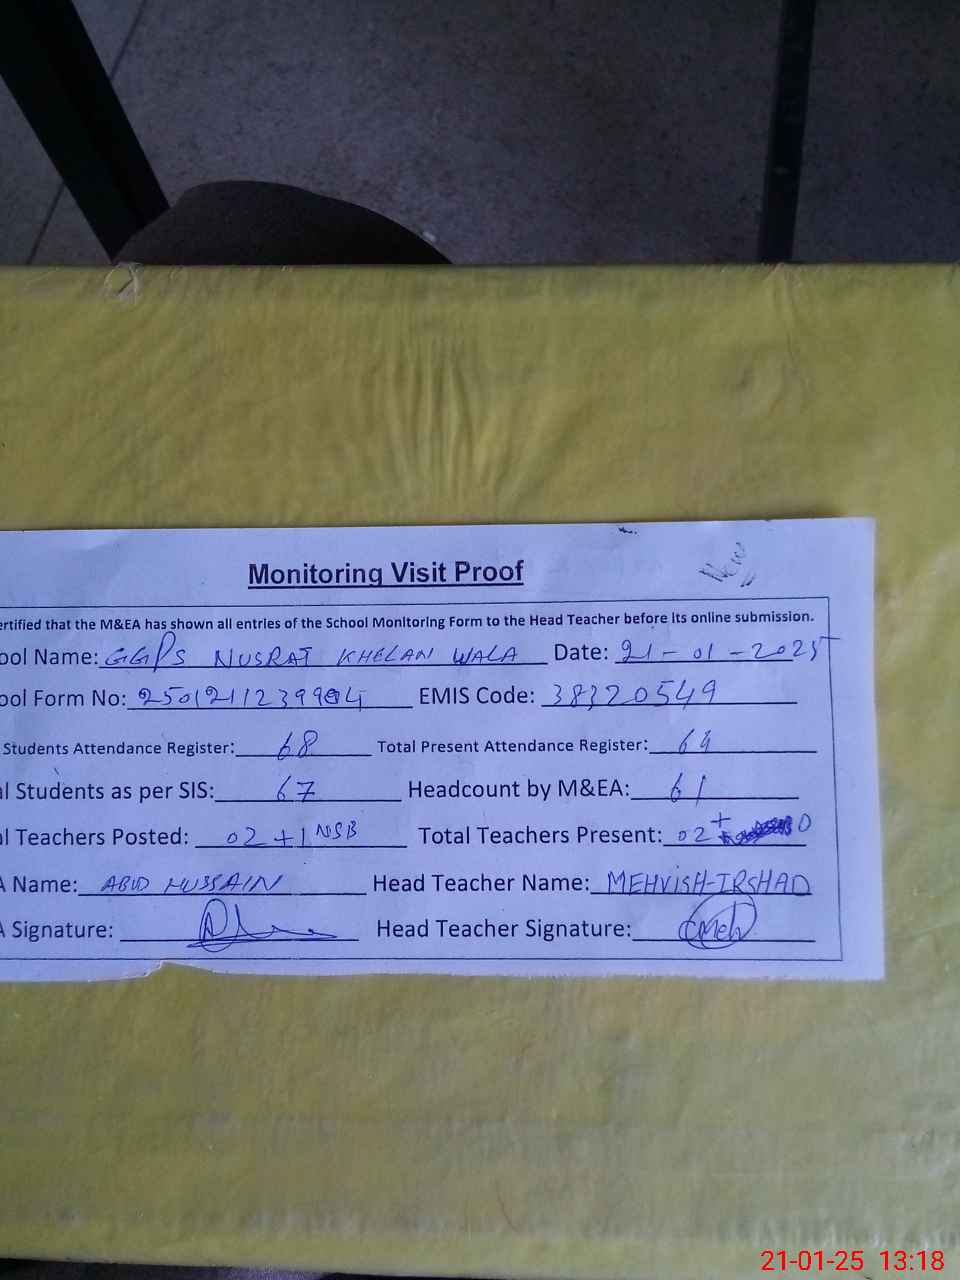 New
Monitoring Visit Proof
ertified that the M&EA has shown all entries of the School Monitoring Form to the Head Teacher before its online submission.
ool Name: GGPS NUSRAT KHELAN WALA Date: 21-01-2025
ool Form No: EMIS Code: 38320549
Students Attendance Register: 68 Total Present Attendance Register:
al Students as per SIS: 67 Headcount by M&EA: 61
al Teachers Posted: 02+1 NSB Total Teachers Present: 02+0
A Name: ABID HUSSAIN Head Teacher Name: MEHVISH-IRSHAD
A Signature: Head Teacher Signature: Meh
21-01-25 13:18